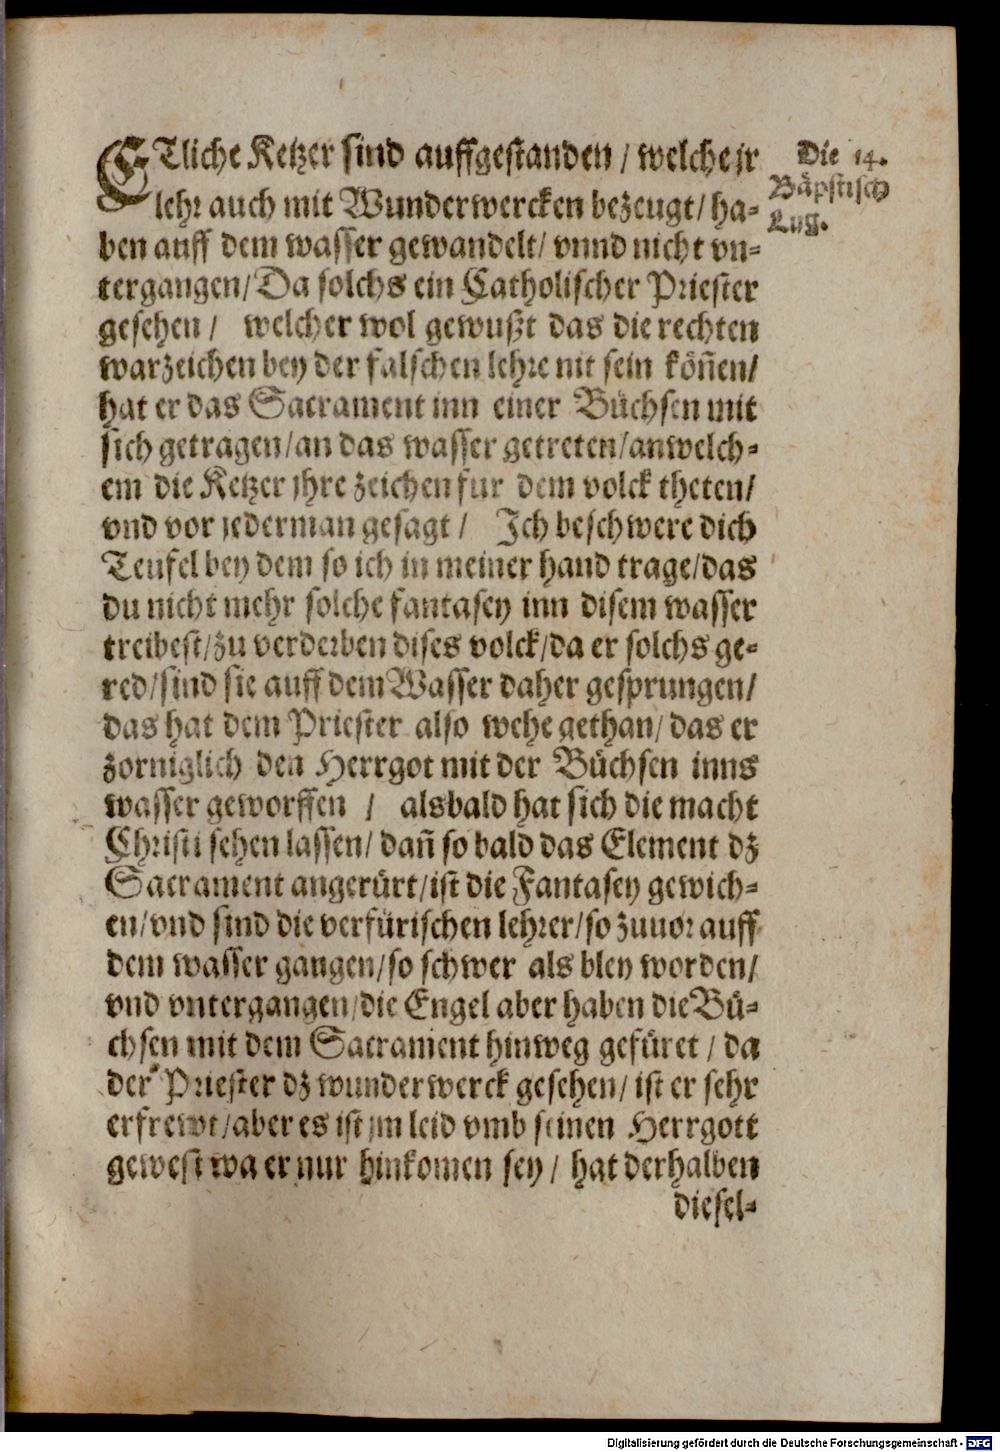 ETliche Ketzer sind auffgestanden / welche jr
lehr auch mit Wunderwercken bezeugt / ha-
ben auff dem wasser gewandelt / vnnd nicht vn-
tergangen / Da solchs ein Catholischer Priester
gesehen / welcher wol gewußt das die rechten
warzeichen bey der falschen lehre nit sein köñen /
hat er das Sacrament inn einer Büchsen mit
sich getragen / an das wasser getreten / anwelch-
em die Ketzer jhre zeichen fur dem volck theten /
vnd vor jederman gesagt / Ich beschwere dich
Teufel bey dem so ich in meiner hand trage / das
du nicht mehr solche fantasey inn disem wasser
treibest / zu verderben dises volck / da er solchs ge-
red / sind sie auff dem Wasser daher gesprungen /
das hat dem Priester also wehe gethan / das er
zorniglich den Herrgot mit der Büchsen inns
wasser geworffen / alsbald hat sich die macht
Christi sehen lassen / dañ so bald das Element dz
Sacrament angerürt / ist die Fantasey gewich-
en / vnd sind die verfürischen lehrer / so zuuor auff
dem wasser gangen / so schwer als bley worden /
vnd vntergangen / die Engel aber haben die Bü-
chsen mit dem Sacrament hinweg gefüret / da
der Priester dz wunderwerck gesehen / ist er sehr
erfrewt / aber es ist jm leid vmb seinen Herrgott
gewest wa er nur hinkomen sey / hat derhalben
diesel-
Die 14.
Bäpstisch
Lug.
Digitalisierung gefördert durch die Deutsche Forschungsgemeinschaft - DFG